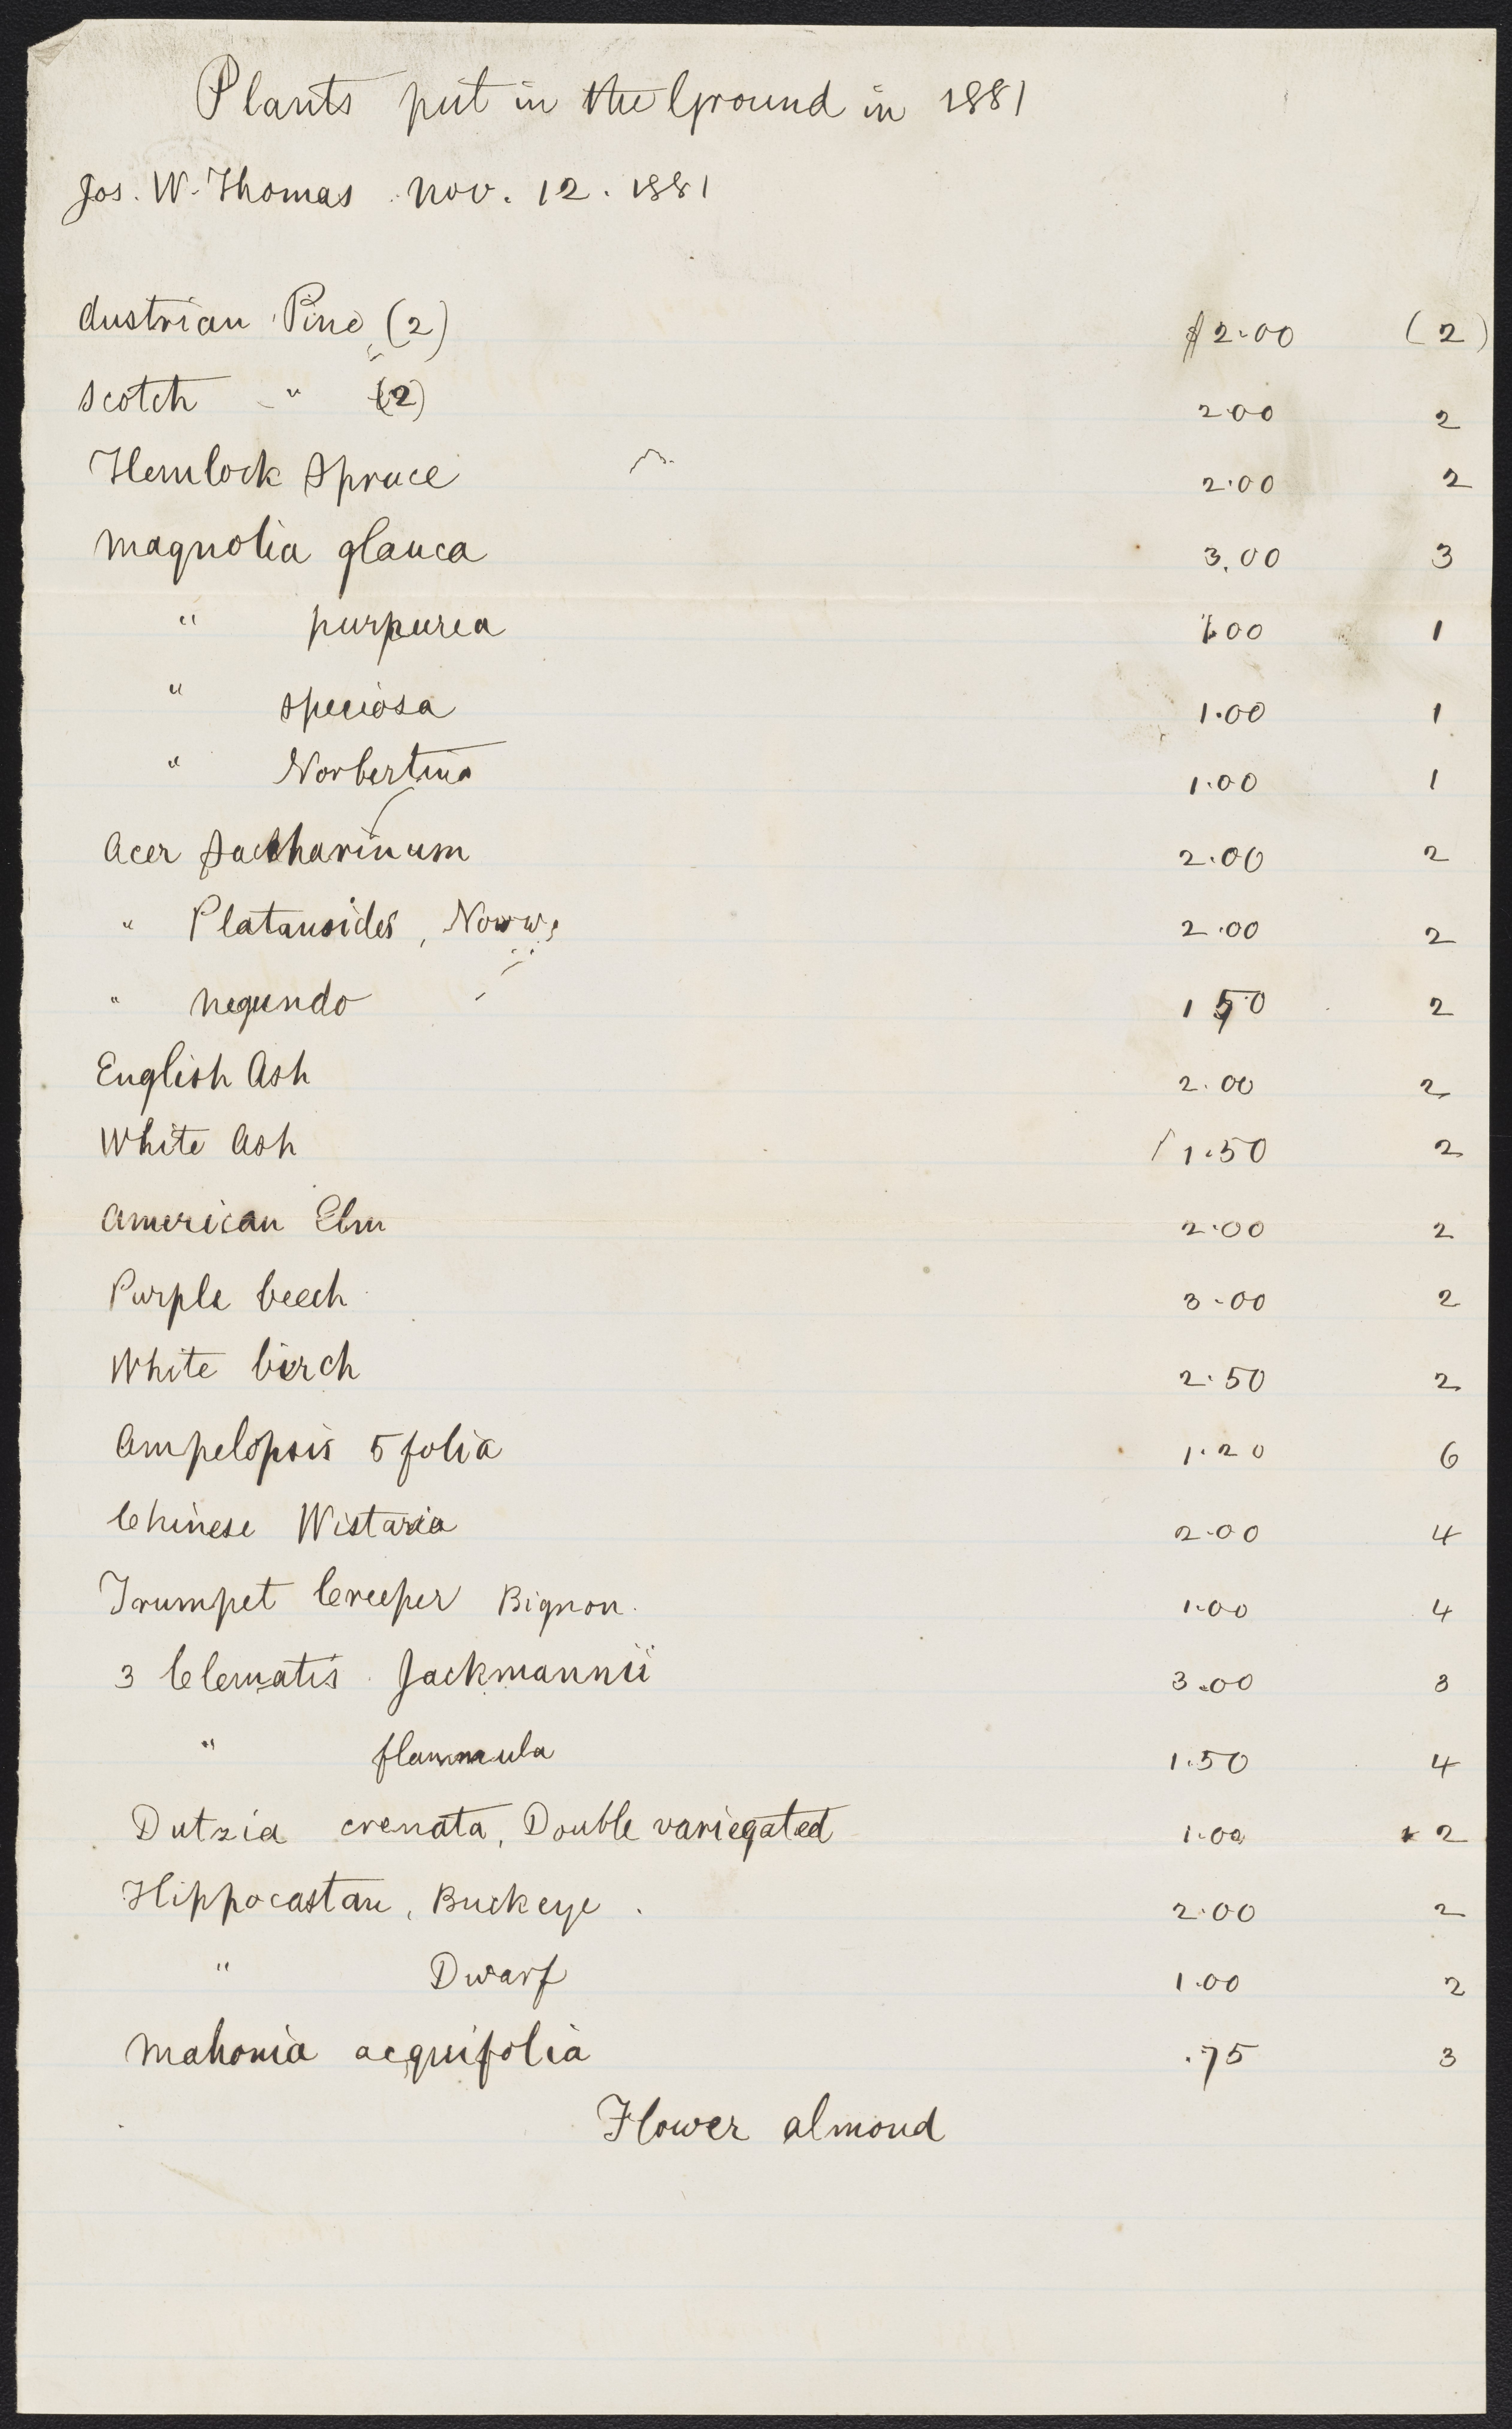 Plants put in the Ground in 1881
Jos. W. Thomas Nov. 12. 1881
Austrian Pine (2) $2.00 (2)
Scotch " (2) 2.00 2
Hemlock Spruce 2.00 2
Magnolia glauca 3.00 3
" purpurea 1.00 1
" speciosa 1.00 1
" Norbertina 1.00 1
Acer Saccharinum 2.00 2
" Platanoides, Norw. 2.00 2
" Negundo 1 50 2
English Ash 2.00 2
White Ash 1.50 2
American Elm 2.00 2
Purple beech 3.00 2
White birch 2.50 2
Ampelopsis 5 folia 1.20 6
Chinese Wistaria 2.00 4
Trumpet Creeper Bignon. 1.00 4
3 Clematis Jackmannii 3.00 3
" flammula 1.50 4
Dutzia crenata, Double variegated 1.00 2
Hippocastan, Buckeye . 2.00 2
" Dwarf 1.00 2
Mahonia acquifolia .75 3
Flower almond